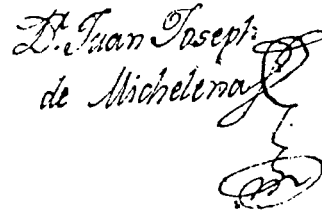 Dn. Juan Joseph
de Michelena